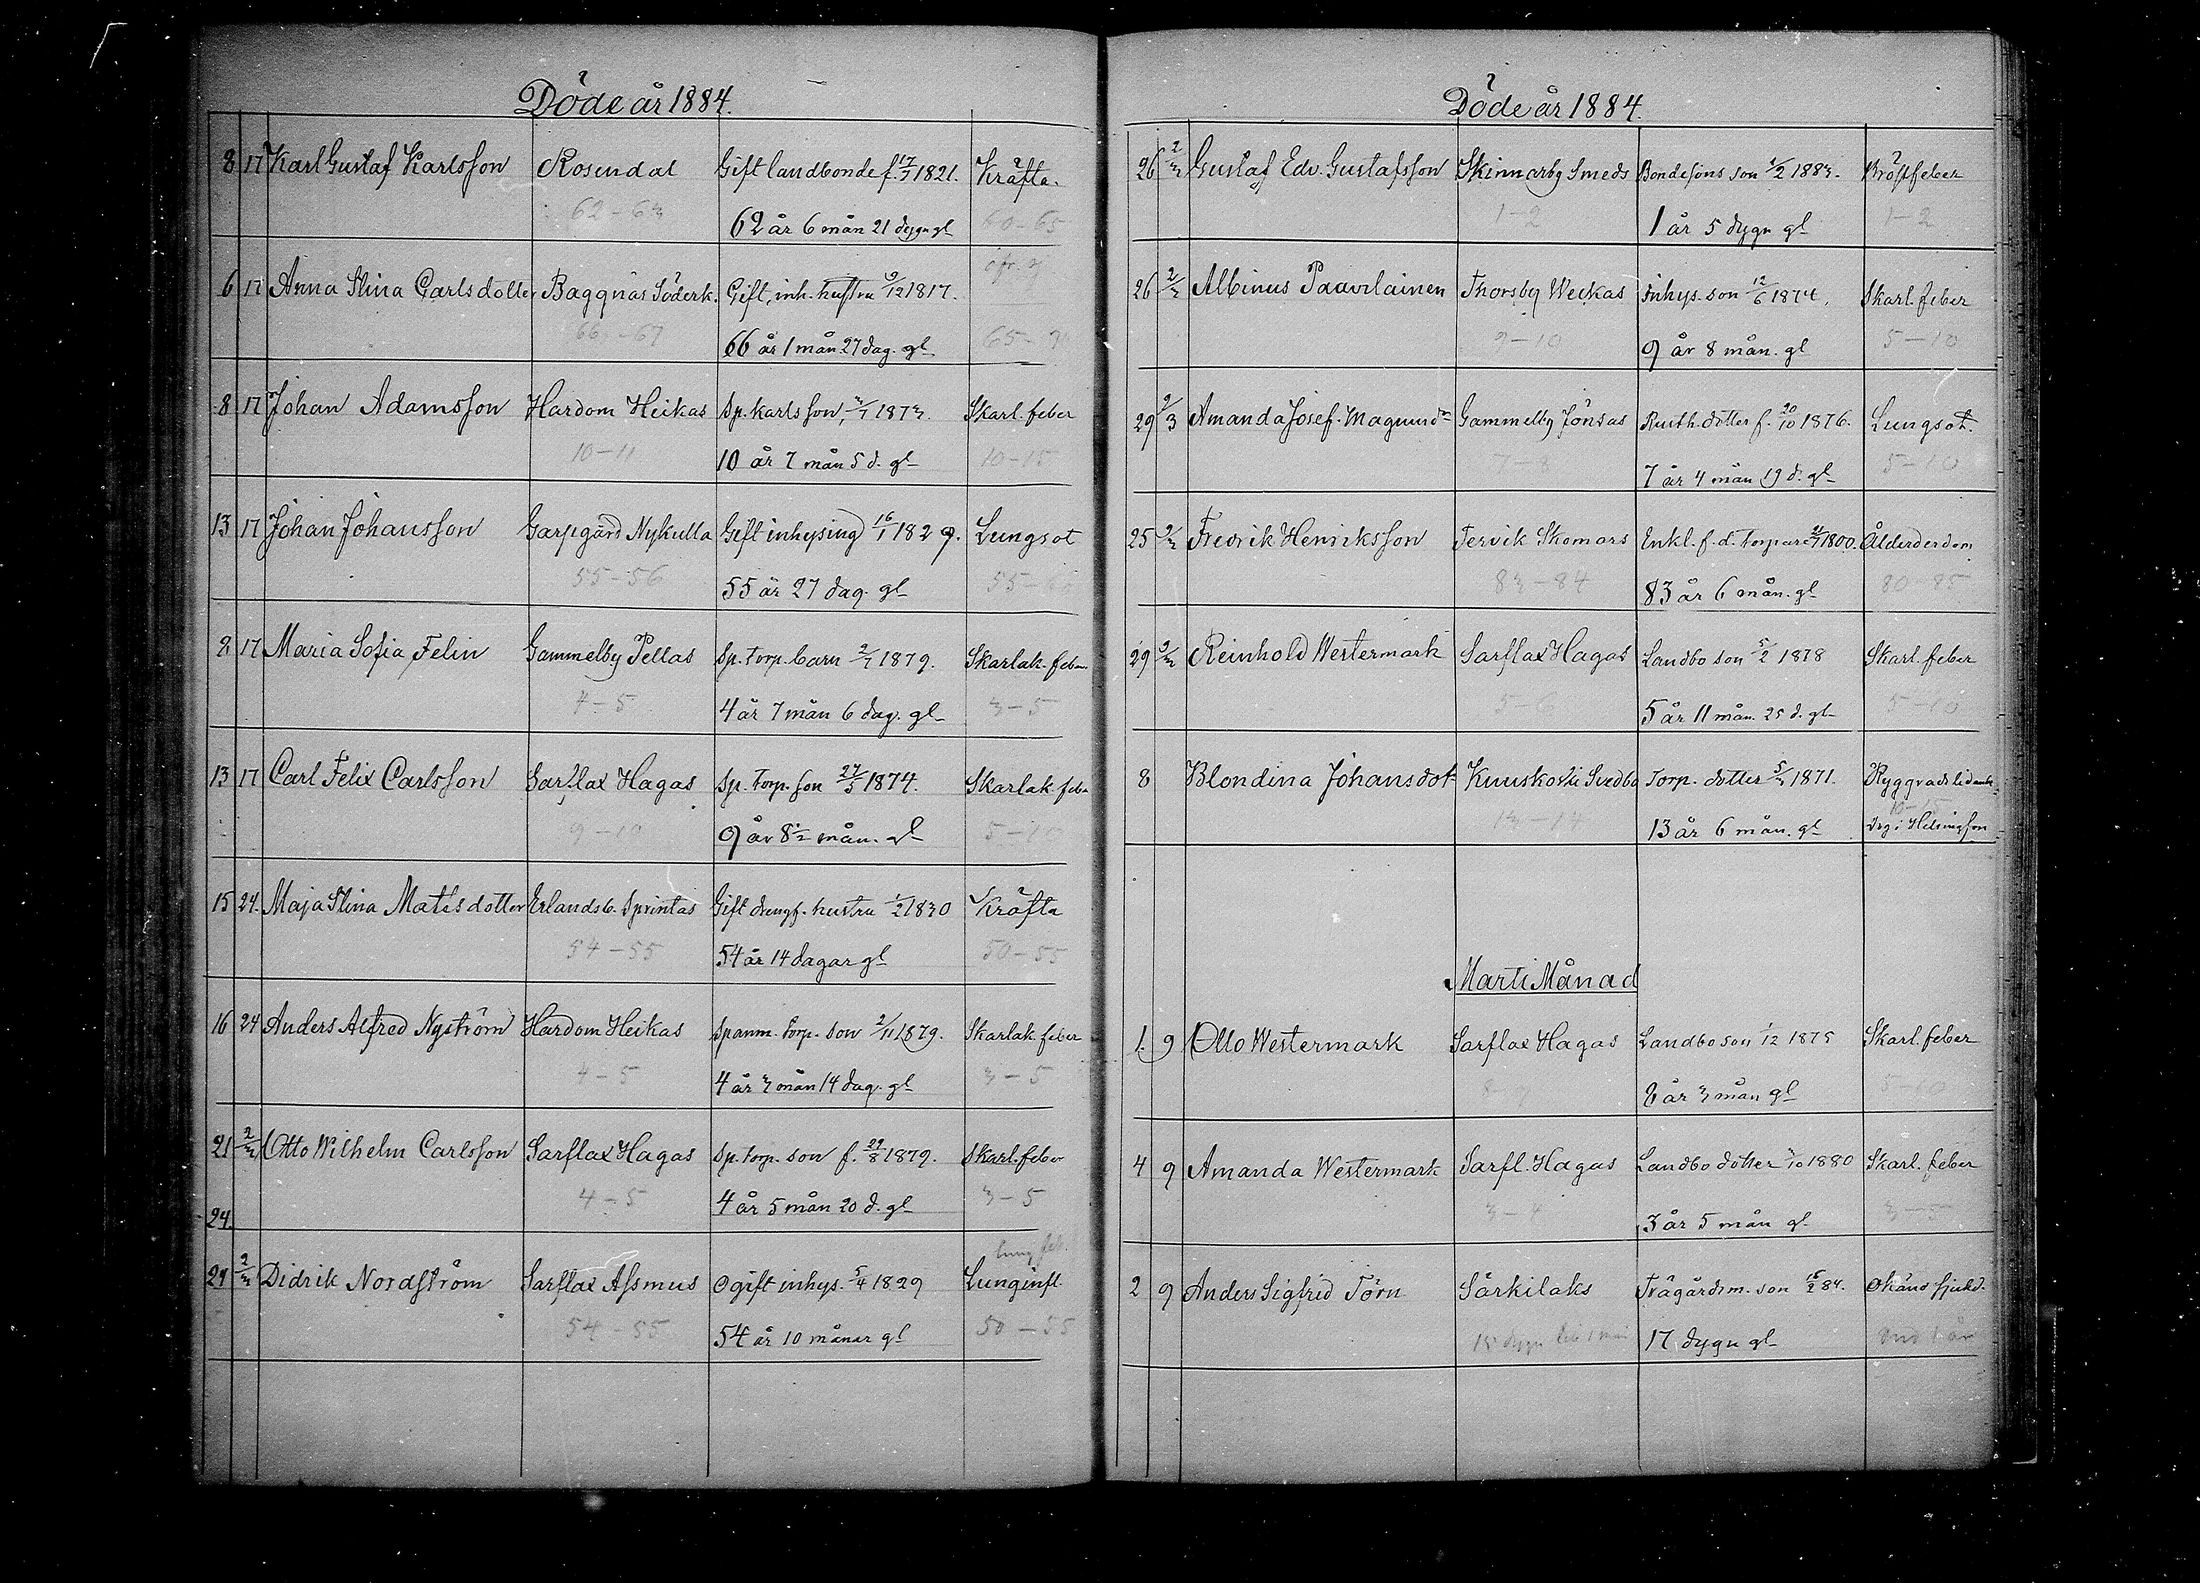 Döde år 1884.
8 17 Karl Gustaf Karlsson Rosendal Gift landbonde f. 17/7 1821. Kräfta.
62-63 62 år 6 mån 21 dygn gl 60-65
6 17 Anna Stina Carlsdotter Baggnäs Söderk. Gift, inh. hustru 9/12 1817.
66-67 66 år 1 mån 27 dag. gl
8 17 Johan Adamsson Hardom Heikas Sp. karls son, 3/7 1873. Skarl. feber
10-11 10 år 7 mån 5 d. gl 10-15
13 17 Johan Johansson Garpgård Nykulla Gift inhysing 16/1 1829. Lungsot
55-56 55 år 27 dag. gl 55-60
2 17 Maria Sofia Felin Gammelby Pellas Sp. Torp. barn 2/7 1879. Skarlak. feber
4-5 4 år 7 mån 6 dag. gl 3-5
13 17 Carl Felix Carlsson Sarflax Hagas Sp. Torp. son 27/5 1874. Skarlak. feb.
9-10 9 år 8½ mån. gl 5-10
15 24. Maja Stina Matsdotter Erlandsb. Sprintas Gift drengs. hustru 1/2 1830 Kräfta
54-55 54 år 14 dagar gl 50-55
16 24 Anders Alfred Nyström Hardom Heikas Spanm. Torp. son 2/11 1879. Skarlak. feber
4-5 4 år 3 mån 14 dag. gl 3-5
21 2/3 Otto Wilhelm Carlsson Sarflax Hagas Sp. Torp. son f. 29/8 1879. Skarl. feber
4-5 4 år 5 mån 20 d. gl 3-5
24.
21 2/3 Didrik Nordström Sarflax Assmus Ogift inhys. 5/4 1829 Lunginfl
54-55 54 år 10 månar gl 50-55
Döde år 1884.
26 2/3 Gustaf Edv. Gustafsson Skinnarby Smeds Bondesons son 1/2 1883. Bröstfeber
1-2 1 år 5 dygn gl 1-2
26 2/3 Albinus Paavilainen Thorsby Weckas Inhys. son 12/6 1874. Skarl. feber
9-10 9 år 8 mån. gl 5-10
29 2/3 Amanda Josef. Magnusd. Gammelby Jönsas Rusth. dotter f. 20/10 1876. Lungsot.
7-8 7 år 4 mån 19 d. gl 5-10
25 2/3 Fredrik Henriksson Tervik Skomars Enkl. f.d. Torpare 1800. Ålderderdom
83-84 83 år 6 mån. gl 80-85
29 2/3 Reinhold Westermark Sarflax Hagas Landbo son 5/2 1878 Skarl. feber
5-6 5 år 11 mån. 25 d. gl 5-10
8 Blondina Johansdot Kuuskoski Svedbo Torp. dotter 5/3 1871. Ryggradslidande
13-14 13 år 6 mån. gl 10-15
Dog i Helsingfors
Marti Månad
1. 9 Otto Westermark Sarflax Hagas Landbo son 1/12 1875 Skarl. feber
8 år 3 mån gl 5-10
4 9 Amanda Westermark Sarfl. Hagas Landbo dotter 3/10 1880 Skarl. feber
3-4 3 år 5 mån gl 3-5
2 9 Anders Sigfrid Törn Särkilaks Trägårdsm. son 15/2 84. Okänd sjukd.
17 dygn gl